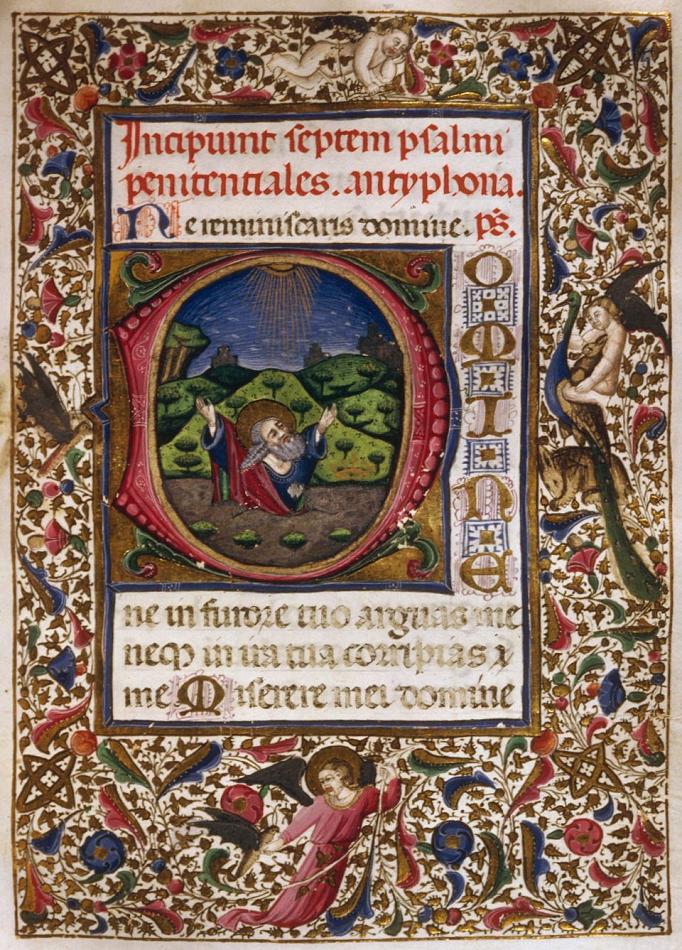 Incipiunt septem psalmi
penitentiales. antyphona.
Ne reminiscaris domine. ps̃.
DOMINE
ne in furore tuo arguas me
neq̃ in ira tua corripias
me Miserere mei domine